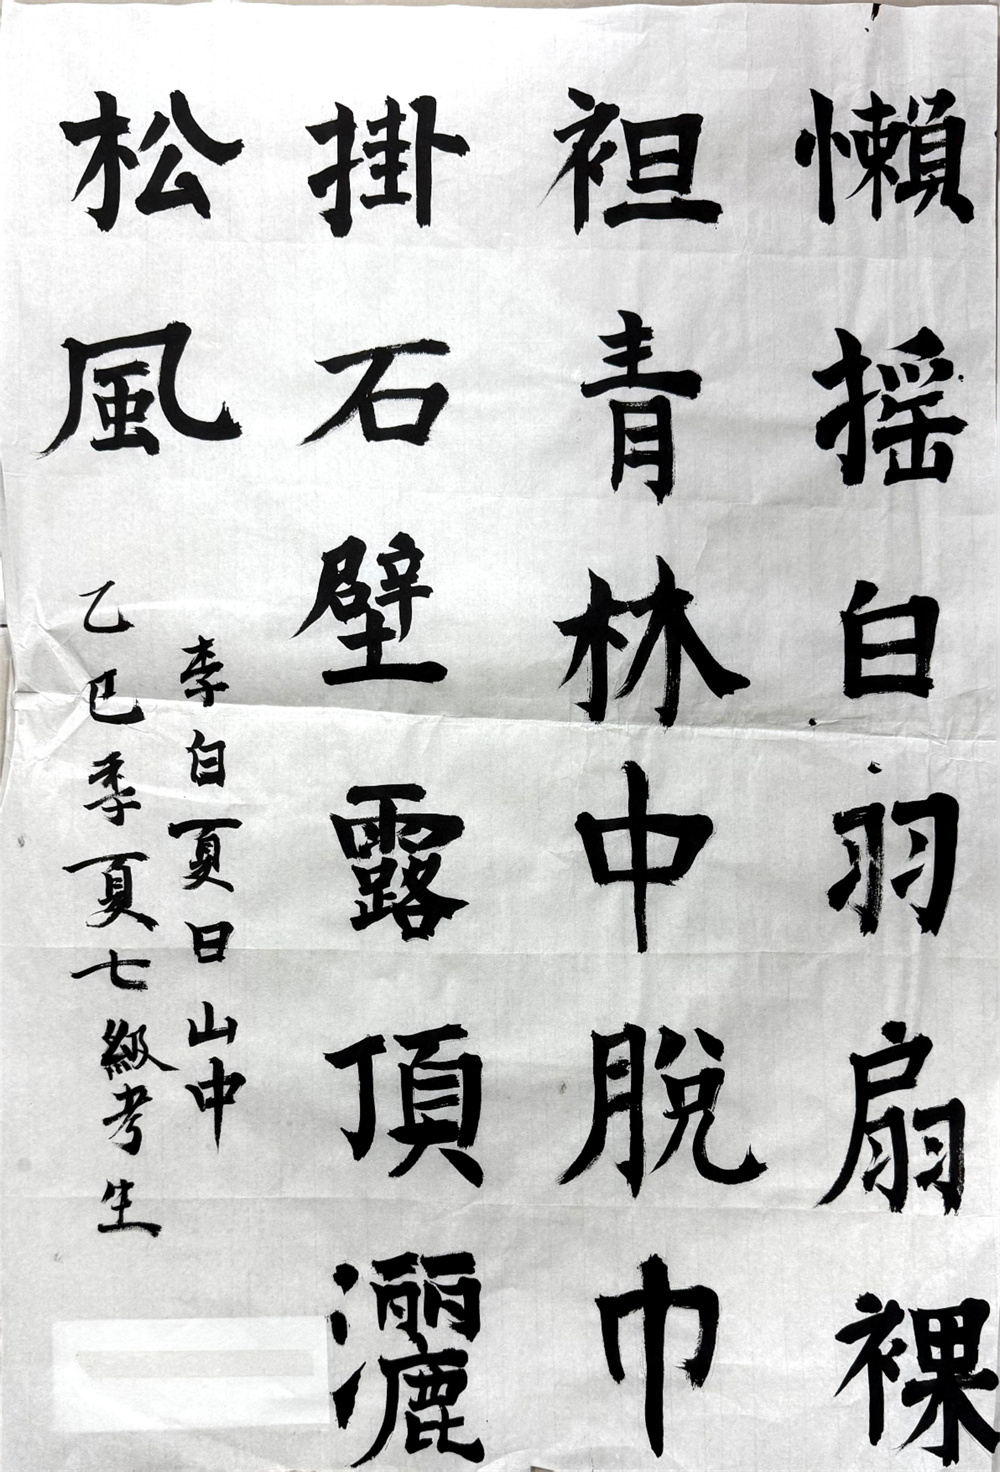 懶摇白羽扇裸
袒青林中脫巾
掛石壁露頂灑
松風
李白夏日山中
乙巳季夏七級考生